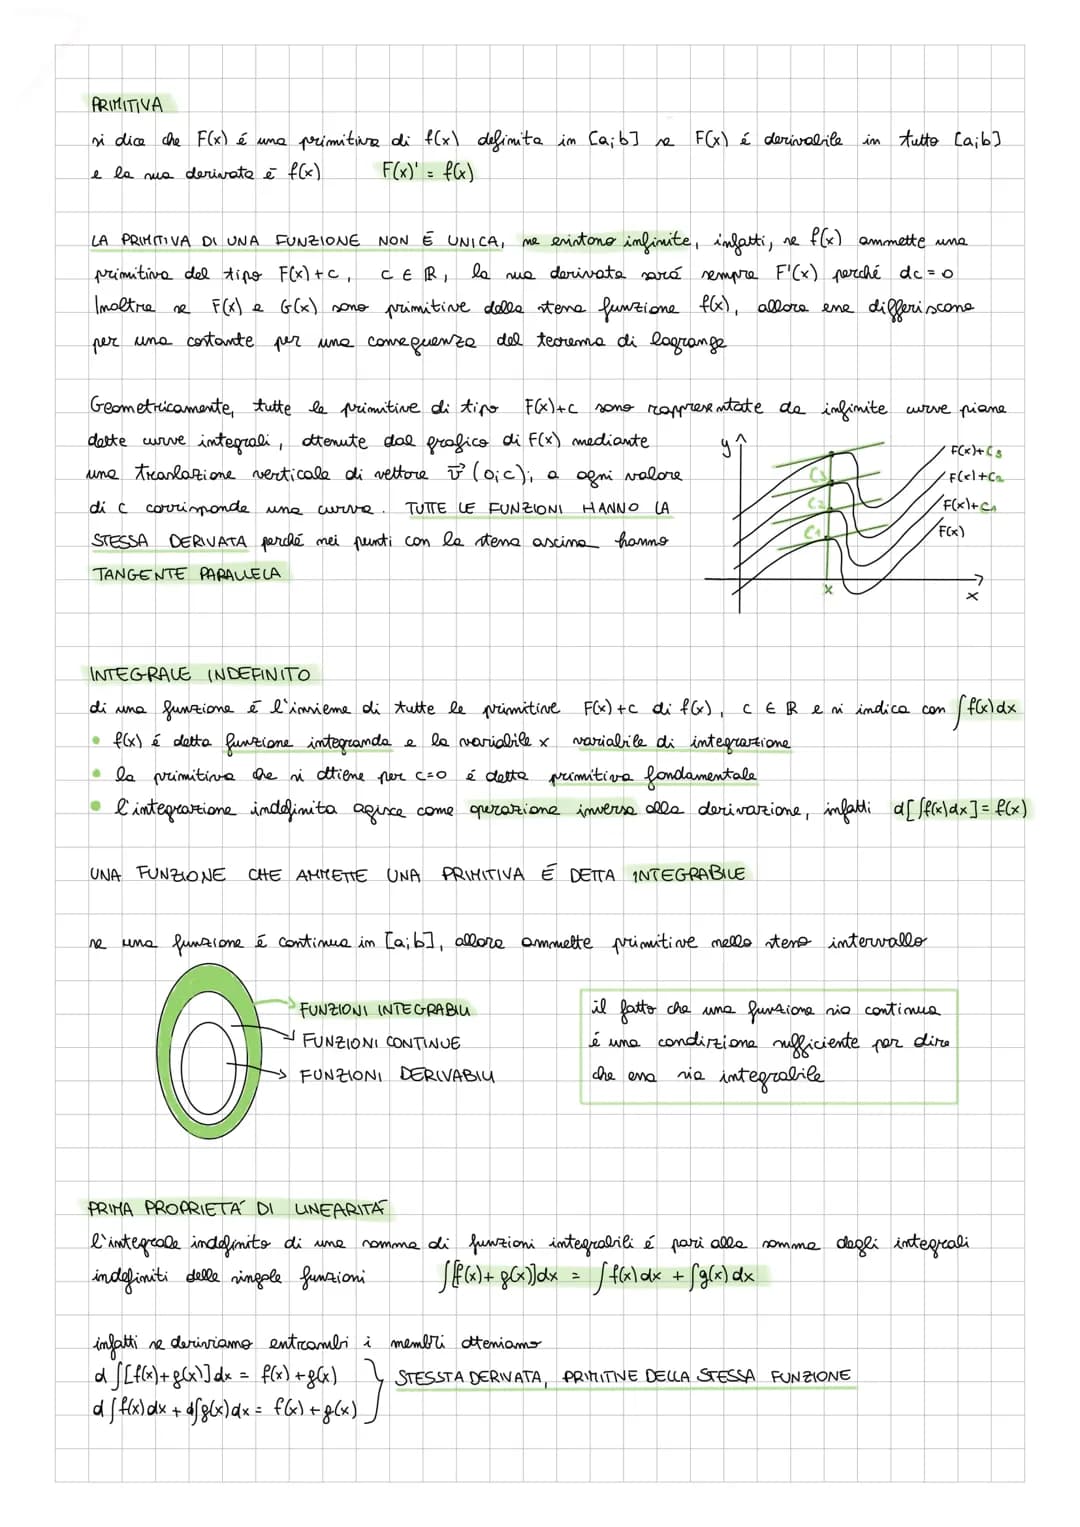 PRIMITIVA
si dice che F(x) é una primitiva di f(x) definita in [a;b] se F(x) é derivabile in tutto [a;b]
e la sua derivata é f(x) F(x)' = f(x)
LA PRIMITIVA DI UNA FUNZIONE NON É UNICA, ne esistono infinite, infatti, se f(x) ammette una
primitiva del tipo F(x)+c, c ∈ R, la sua derivata sará sempre F'(x) perché dc = 0
Inoltre se F(x) e G(x) sono primitive della stessa funzione f(x), allora esse differiscono
per una costante per una conseguenza del teorema di lagrange
Geometricamente, tutte le primitive di tipo F(x)+c sono rappresentate da infinite curve piane
dette curve integrali, ottenute dal grafico di F(x) mediante
una traslazione verticale di vettore v⃗ (0;c); a ogni valore
di c corrisponde una curva. TUTTE LE FUNZIONI HANNO LA
STESSA DERIVATA perché nei punti con la stessa ascissa hanno
TANGENTE PARALLELA
y
F(x)+C3
F(x)+C2
F(x)+C1
F(x)
C3
C2
C1
x
x
INTEGRALE INDEFINITO
di una funzione é l'insieme di tutte le primitive F(x)+c di f(x), c ∈ R e si indica con ∫f(x)dx
• f(x) é detta funzione integranda e la variabile x variabile di integrazione
• la primitiva che si ottiene per c=0 é detta primitiva fondamentale
• l'integrazione indefinita agisce come operazione inversa alla derivazione, infatti d[∫f(x)dx] = f(x)
UNA FUNZIONE CHE AMMETTE UNA PRIMITIVA É DETTA INTEGRABILE
se una funzione é continua in [a;b], allora ammette primitive nello stesso intervallo
FUNZIONI INTEGRABILI
FUNZIONI CONTINUE
FUNZIONI DERIVABILI
il fatto che una funzione sia continua
é una condizione sufficiente per dire
che essa sia integrabile
PRIMA PROPRIETA' DI LINEARITÁ
l'integrale indefinito di una somma di funzioni integrabili é pari alla somma degli integrali
indefiniti delle singole funzioni ∫[f(x)+ g(x)]dx = ∫f(x)dx + ∫g(x)dx
infatti se deriviamo entrambi i membri otteniamo
d∫[f(x)+g(x)]dx = f(x)+g(x)
d∫f(x)dx + d∫g(x)dx = f(x)+g(x)
STESSTA DERIVATA, PRIMITIVE DELLA STESSA FUNZIONE